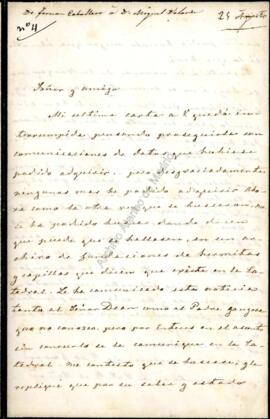 De Fernan Caballero á Dn Miguel Velarde
25 Agosto
nº 4
Señor y amigo
Mi ultima carta a V quedó in
terrumpida pensando proseguirla con
comunicaciones de datos que hubiese
podido adquirir, pero desgraciadamente
nengunas mas he podido adquirir Aho
ra como la otra vez que se buscaron. no
se ha podido hacer dando dicen
que puede que se hallasen, en un ar
chivo de fundaciones de hermitas
y capillas que dicen que existe en la Ca
tedral. Lo he comunicado esta noticia
tanto al Señor Dean como al Padre
que no conozco pero por interes en el asun
to como lo se le comunique en la Ca
tedral. me contesto que se buscase; yle
repliqué que por su saber y estado